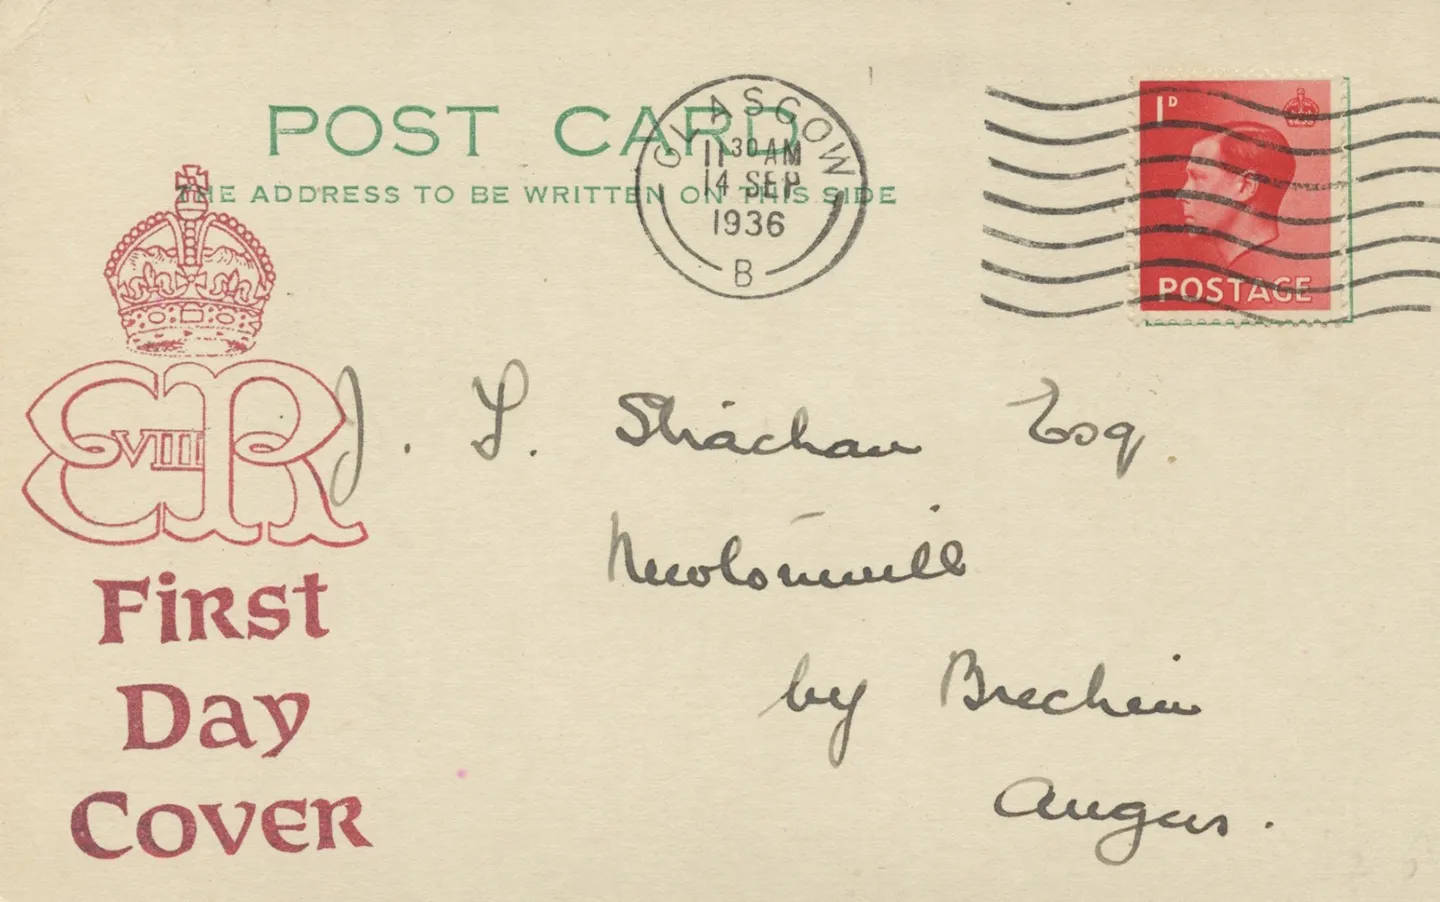 POST CARD
THE ADDRESS TO BE WRITTEN ON THIS SIDE
GLASGOW
11 30 AM
14 SEP
1936
B
1D
POSTAGE
E VIII R
J. Strachan Esq
by Brechin
Angus.
First
Day
Cover